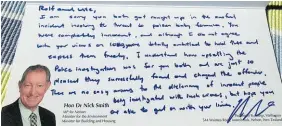 Rolf and Lise,
I am sorry you both got caught up in the awful
incident involving the threat to poison baby formula. You
were completely innocent, and although I do not agree
with your views on totally entitled to hold them and
express them freely. I understand how upsetting the
Police investigation was for you both and am just so
pleased they successfully found and charged the offender
There are no easy answers to the dilemmas of innocent people
being investigated with such crimes, but hope you
are able to get on with your lives
Hon Dr Nick Smith
MP for Nelson
Minister for the Environment
Minister for Building and Housing